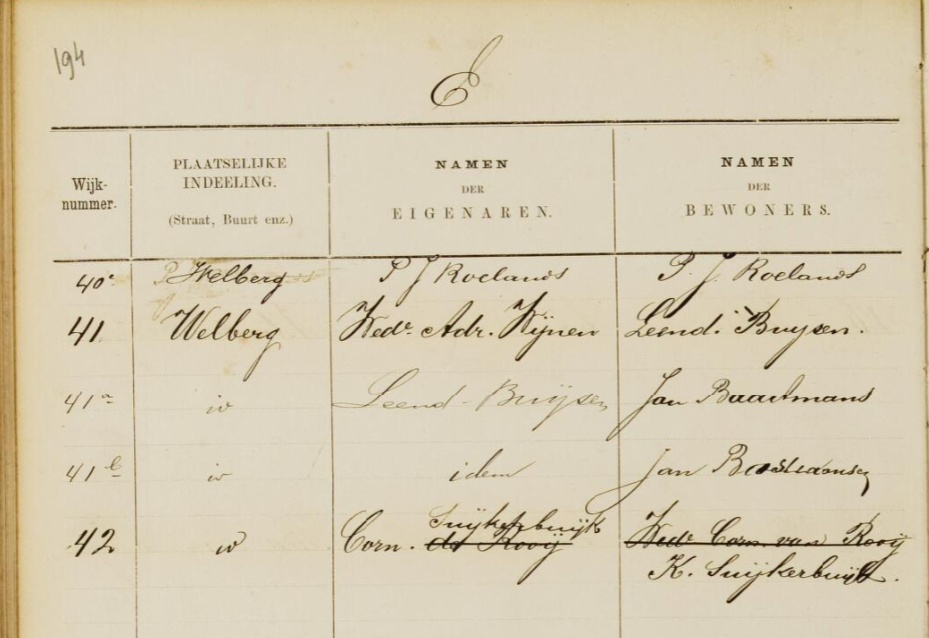 194
E
Wijk-nummer. PLAATSELIJKE INDEELING. (Straat, Buurt enz.) NAMEN DER EIGENAREN. NAMEN DER BEWONERS.
40c Welberg P J Roelands P. J. Roelands
41 Welberg Wedr. Adr. Wijnen Leend. Buysen.
41a id Leend. Buijsen Jan Baartmans
41b id idem Jan Bastiaansen
Suijkerbuijk
42 id Corn. de Rooij Wedr Corn. van Rooij
K. Suijkerbuijk.